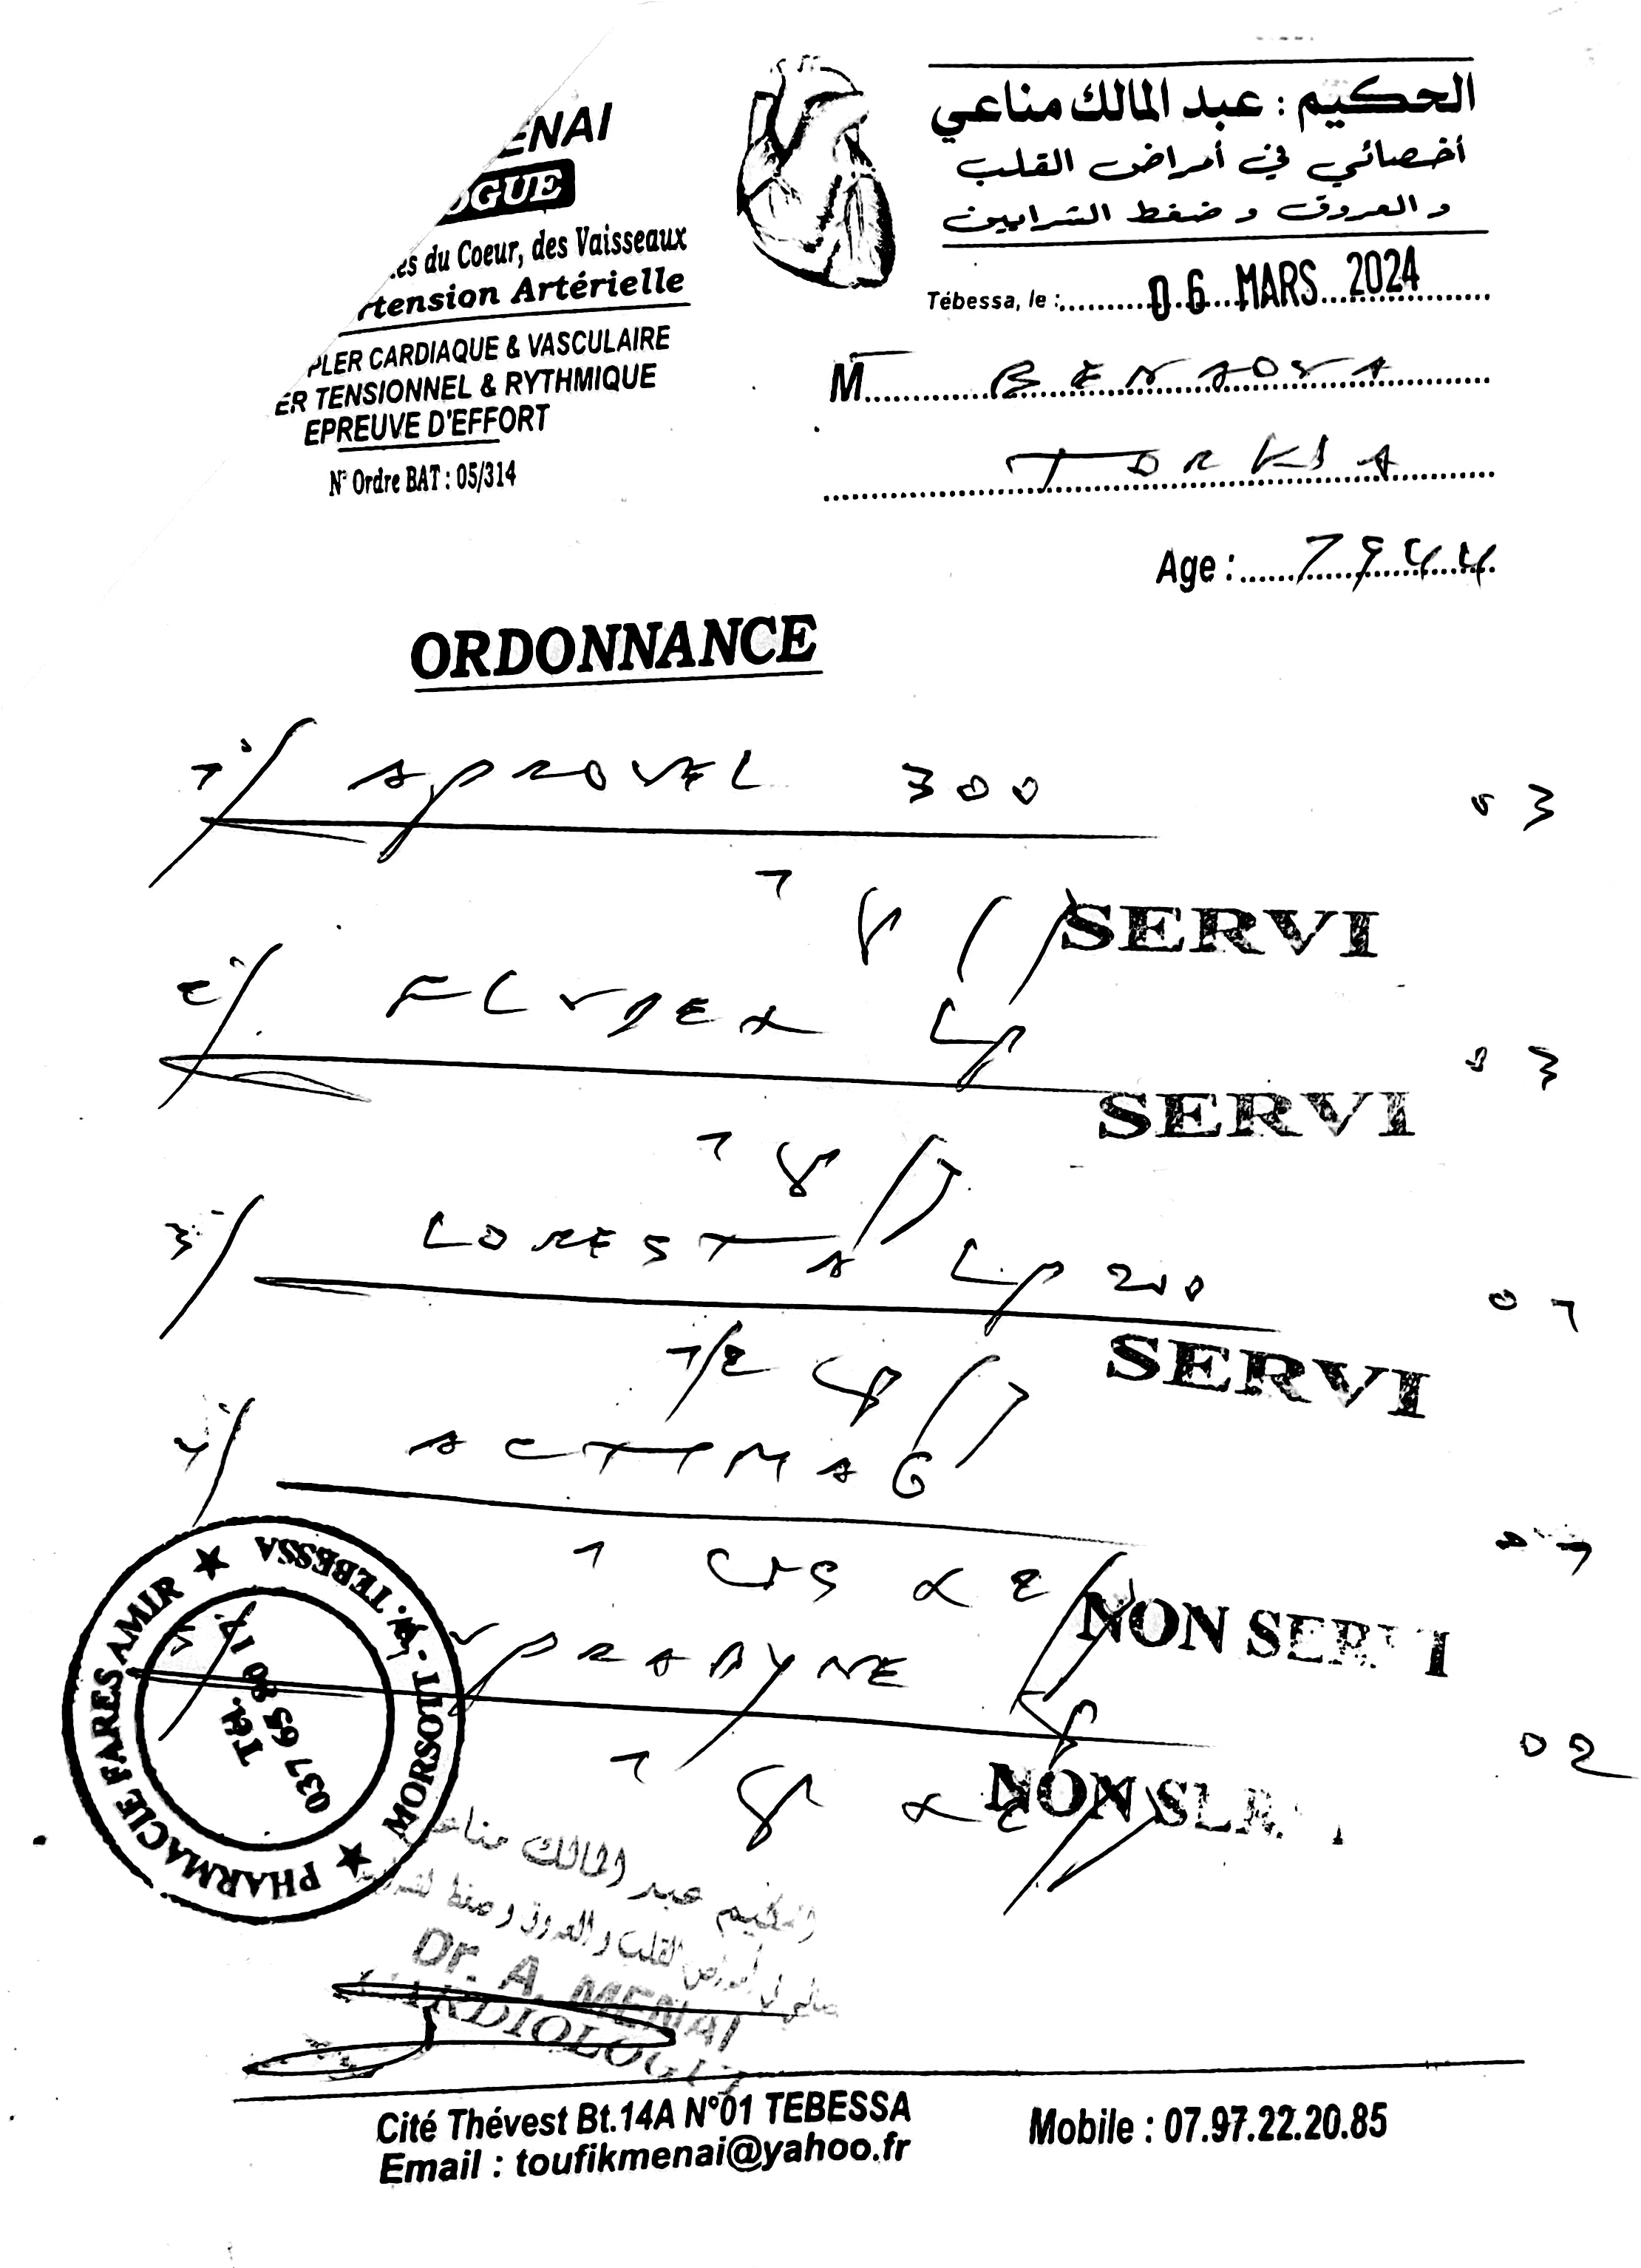 ENAI
OGUE
es du Coeur, des Vaisseaux
rtension Artérielle
PLER CARDIAQUE & VASCULAIRE
ER TENSIONNEL & RYTHMIQUE
EPREUVE D'EFFORT
N° Ordre BAT : 05/314
الحكيم : عبد المالك مناعي
أخصائي في أمراض القلب
و العروق و ضغط الشرايين
Tébessa, le : 06 MARS 2024
M
TORKIA
Age : 1944
ORDONNANCE
1°/ APROVEL 300 03
1
SERVI
2°/ FLUDEX LP 03
SERVI
1 /J
3°/ LORESTA LP 200 01
SERVI
1/2 cp /J
4°/ ACTIMAG 01
1 x 2/J
NON SERVI
5°/ PRADYNE 02
1 x 2/J
NON SERVI
PHARMACIE FARES AMIR ★ MORSOTT - W. TEBESSA ★
Tél.
037 69 58 03 17
الحكيم عبد المالك مناعي
أمراض القلب و العروق و ضغط الشرايين
Dr. A. MENAI
CARDIOLOGUE
Cité Thévest Bt.14A N°01 TEBESSA
Email : toufikmenai@yahoo.fr
Mobile : 07.97.22.20.85